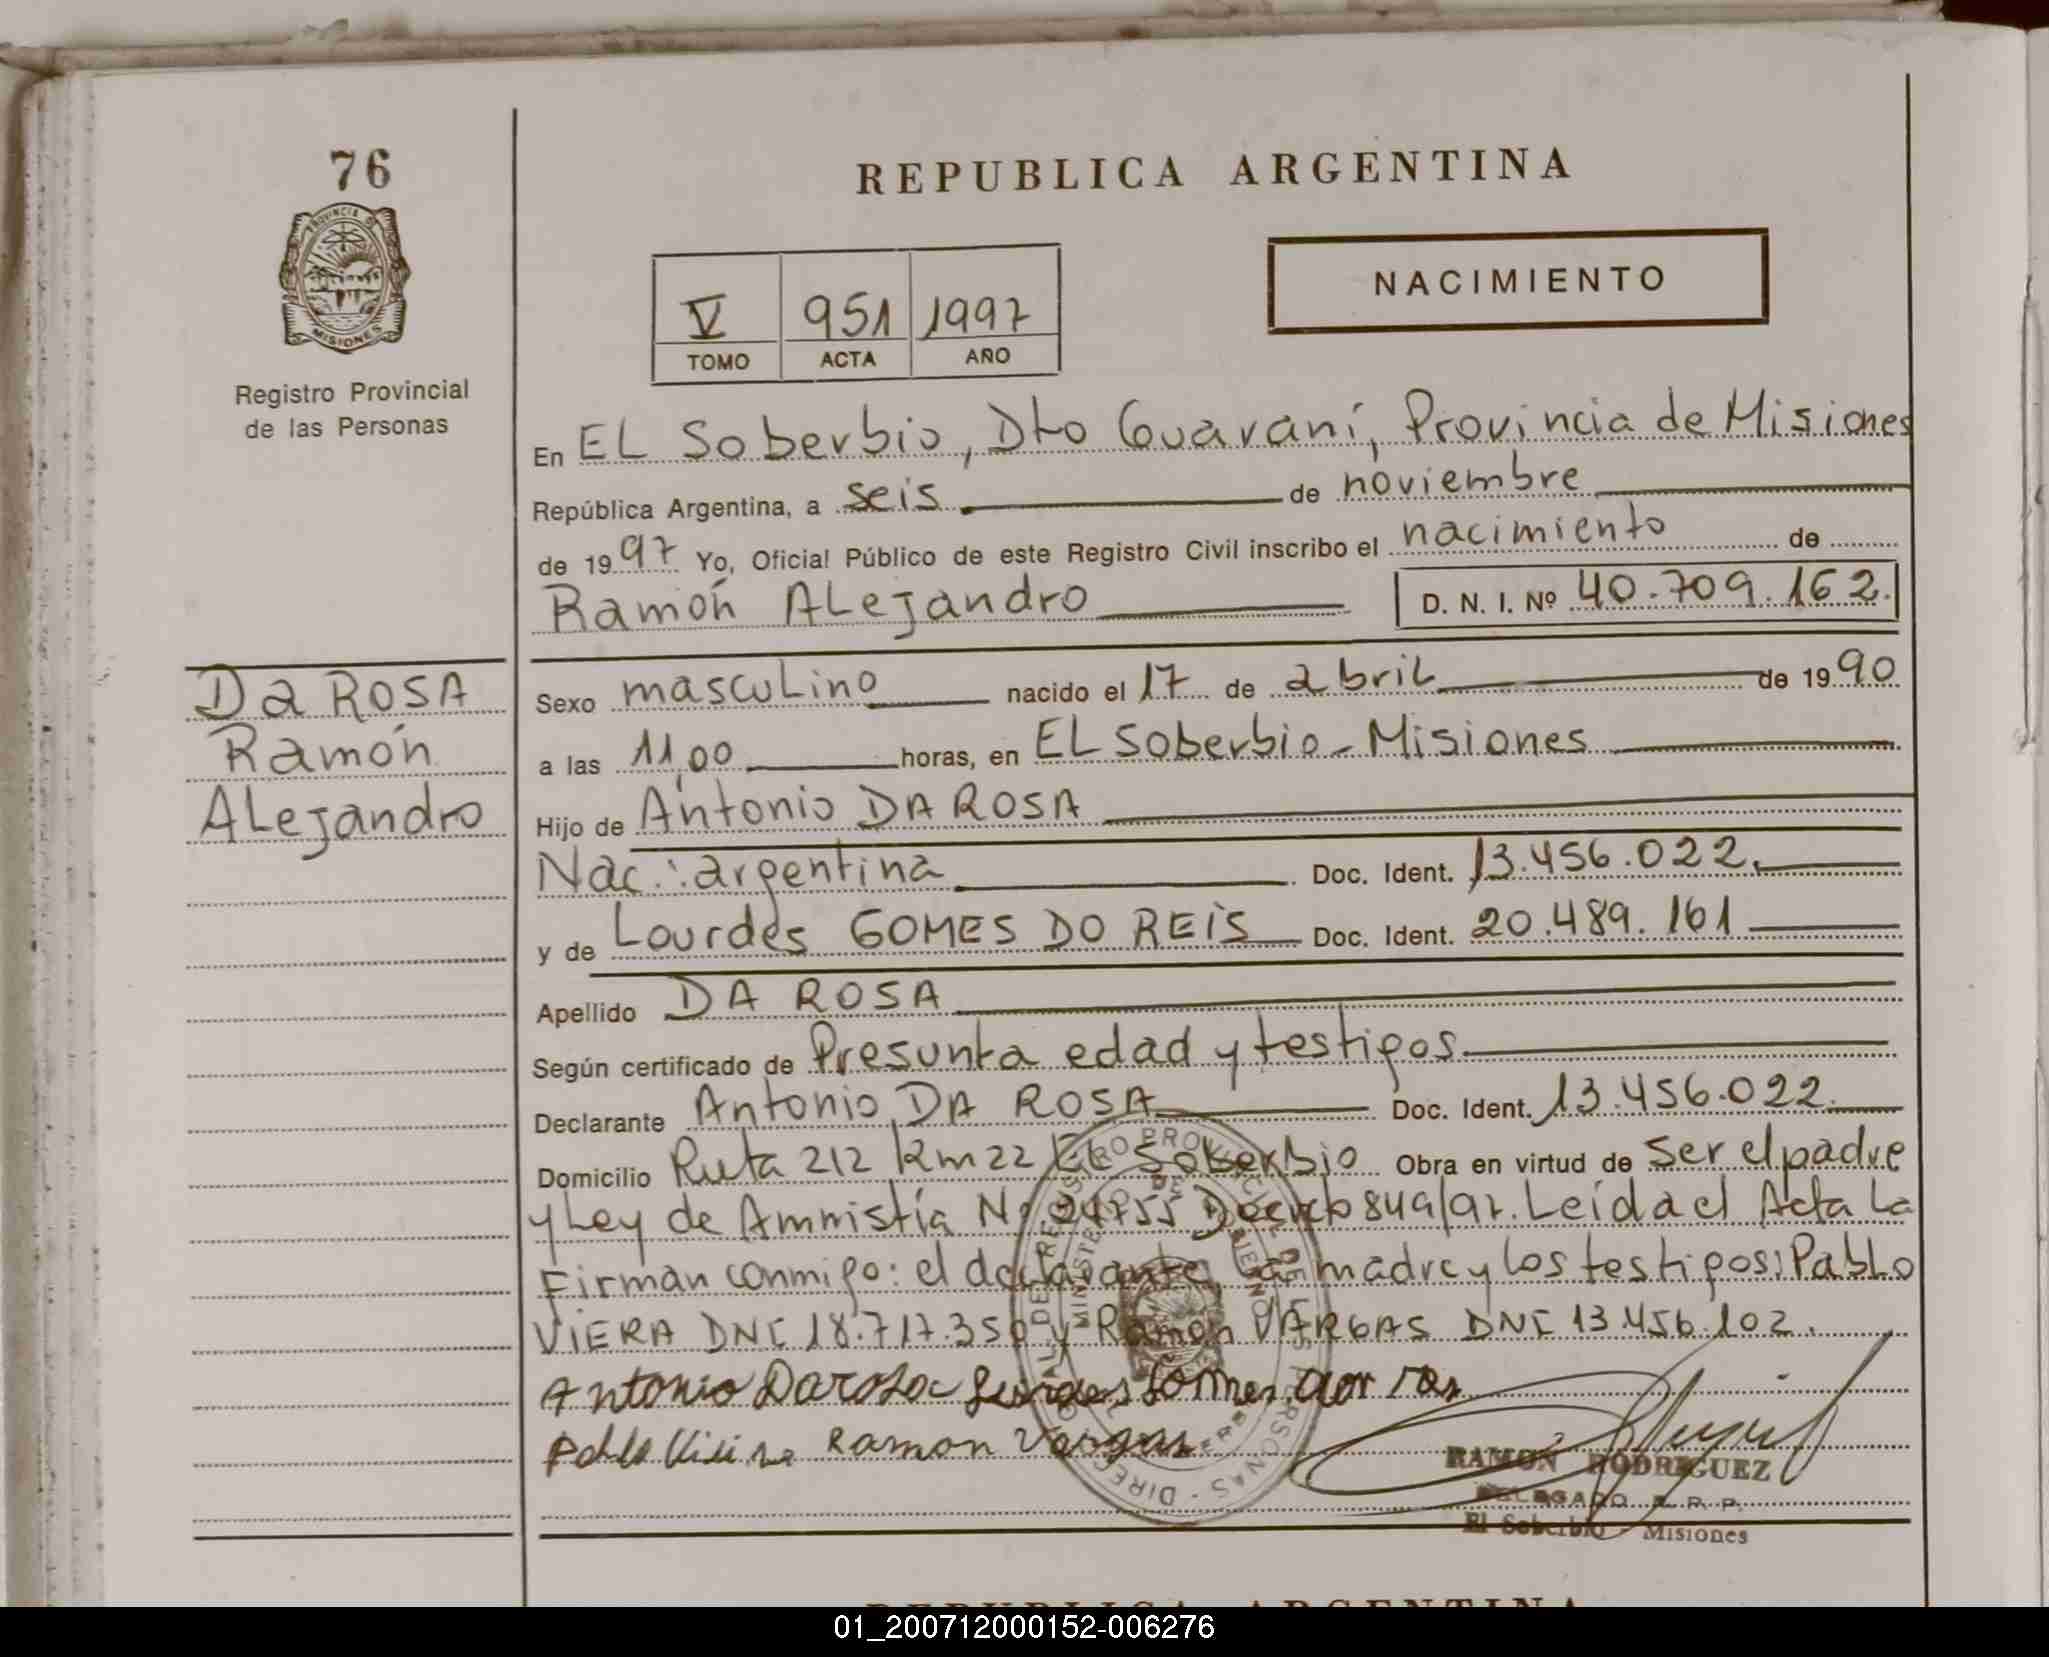 76
REPUBLICA ARGENTINA
PROVINCIA D
MISIONES
Registro Provincial
de las Personas
NACIMIENTO
V 951 1997
TOMO ACTA AÑO
En EL Soberbio, Dto Guaraní, Provincia de Misiones
República Argentina, a seis de noviembre
de 1997 Yo, Oficial Público de este Registro Civil inscribo el nacimiento de
Ramón ALejandro D. N. I. Nº 40.709.162.
Da ROSA
Ramón
ALejandro
Sexo mascuLino nacido el 17 de abriL de 1990
a las 11,00 horas, en EL Soberbio - Misiones
Hijo de Antonio DA ROSA
Nac.: argentina Doc. Ident. 13.456.022.
y de Lourdes GOMES DO REIS Doc. Ident. 20.489.161
Apellido DA ROSA
Según certificado de Presunta edad y testigos
Declarante Antonio DA ROSA Doc. Ident. 13.456.022.
Domicilio Ruta 212 Km 22 EL Soberbio Obra en virtud de ser el padre
y Ley de Amnistía Nº 24755 Decreto 849/97. Leída el Acta La
Firman conmigo: el declarante, la madre y los testigos: PabLo
VIERA DNI 18.717.350 y Ramón VARGAS DNI 13.456.102.
Antonio Darosa Gomes
Ramon Vargas
RAMON RODRIGUEZ
DELEGADO R. P. P.
El Soberbio - Misiones
REPUBLICA ARGENTINA
01_200712000152-006276